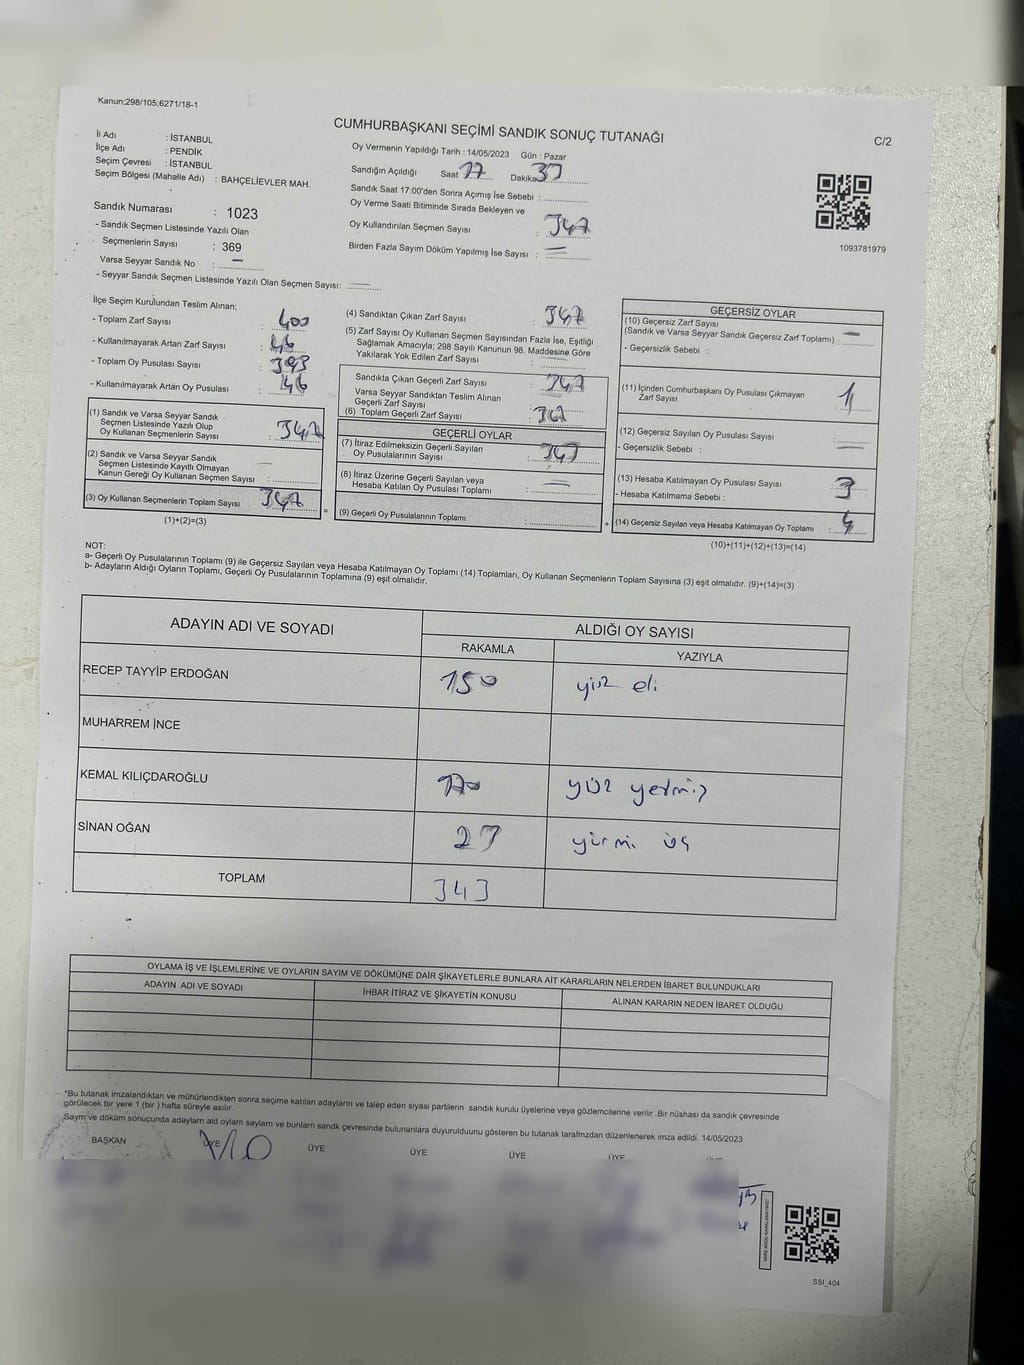 Kanun;298/105;6271/18-1
CUMHURBAŞKANI SEÇİMİ SANDIK SONUÇ TUTANAĞI
C/2
İl Adı : İSTANBUL
İlçe Adı : PENDİK
Seçim Çevresi : İSTANBUL
Seçim Bölgesi (Mahalle Adı) : BAHÇELİEVLER MAH.
Sandık Numarası : 1023
- Sandık Seçmen Listesinde Yazılı Olan
Seçmenlerin Sayısı : 369
Varsa Seyyar Sandık No : —
- Seyyar Sandık Seçmen Listesinde Yazılı Olan Seçmen Sayısı: —
Oy Vermenin Yapıldığı Tarih : 14/05/2023 Gün : Pazar
Sandığın Açıldığı Saat 17 Dakika 37
Sandık Saat 17:00'den Sonra Açımış İse Sebebi :
Oy Verme Saati Bitiminde Sırada Bekleyen ve
Oy Kullandırılan Seçmen Sayısı : 347
Birden Fazla Sayım Döküm Yapılmış İse Sayısı : —
1093781979
İlçe Seçim Kurulundan Teslim Alınan;
- Toplam Zarf Sayısı : 400
- Kullanılmayarak Artan Zarf Sayısı : 46
- Toplam Oy Pusulası Sayısı : 393
- Kullanılmayarak Artan Oy Pusulası : 46
(1) Sandık ve Varsa Seyyar Sandık
Seçmen Listesinde Yazılı Olup
Oy Kullanan Seçmenlerin Sayısı : 347
(2) Sandık ve Varsa Seyyar Sandık
Seçmen Listesinde Kayıtlı Olmayan
Kanun Gereği Oy Kullanan Seçmen Sayısı : —
(3) Oy Kullanan Seçmenlerin Toplam Sayısı : 347
(1)+(2)=(3)
(4) Sandıktan Çıkan Zarf Sayısı : 347
(5) Zarf Sayısı Oy Kullanan Seçmen Sayısından Fazla İse, Eşitliği
Sağlamak Amacıyla; 298 Sayılı Kanunun 98. Maddesine Göre
Yakılarak Yok Edilen Zarf Sayısı : —
Sandıkta Çıkan Geçerli Zarf Sayısı : 347
Varsa Seyyar Sandıktan Teslim Alınan
Geçerli Zarf Sayısı :
(6) Toplam Geçerli Zarf Sayısı : 347
GEÇERLİ OYLAR
(7) İtiraz Edilmeksizin Geçerli Sayılan
Oy Pusulalarının Sayısı : 343
(8) İtiraz Üzerine Geçerli Sayılan veya
Hesaba Katılan Oy Pusulası Toplamı : —
(9) Geçerli Oy Pusulalarının Toplamı :
GEÇERSİZ OYLAR
(10) Geçersiz Zarf Sayısı
(Sandık ve Varsa Seyyar Sandık Geçersiz Zarf Toplamı) : —
- Geçersizlik Sebebi :
(11) İçinden Cumhurbaşkanı Oy Pusulası Çıkmayan
Zarf Sayısı : 1
(12) Geçersiz Sayılan Oy Pusulası Sayısı : —
- Geçersizlik Sebebi : —
(13) Hesaba Katılmayan Oy Pusulası Sayısı : 3
- Hesaba Katılmama Sebebi :
(14) Geçersiz Sayılan veya Hesaba Katılmayan Oy Toplamı : 4
(10)+(11)+(12)+(13)=(14)
NOT:
a- Geçerli Oy Pusulalarının Toplamı (9) ile Geçersiz Sayılan veya Hesaba Katılmayan Oy Toplamı (14) Toplamları, Oy Kullanan Seçmenlerin Toplam Sayısına (3) eşit olmalıdır. (9)+(14)=(3)
b- Adayların Aldığı Oyların Toplamı, Geçerli Oy Pusulalarının Toplamına (9) eşit olmalıdır.
ADAYIN ADI VE SOYADI ALDIĞI OY SAYISI
RAKAMLA YAZIYLA
RECEP TAYYİP ERDOĞAN 150 yüz eli
MUHARREM İNCE
KEMAL KILIÇDAROĞLU 170 yüz yetmiş
SİNAN OĞAN 23 yirmi üç
TOPLAM 343
OYLAMA İŞ VE İŞLEMLERİNE VE OYLARIN SAYIM VE DÖKÜMÜNE DAİR ŞİKAYETLERLE BUNLARA AİT KARARLARIN NELERDEN İBARET BULUNDUKLARI
ADAYIN ADI VE SOYADI İHBAR İTİRAZ VE ŞİKAYETİN KONUSU ALINAN KARARIN NEDEN İBARET OLDUĞU
*Bu tutanak imzalandıktan ve mühürlendikten sonra seçime katılan adayların ve talep eden siyasi partilerin sandık kurulu üyelerine veya gözlemcilerine verilir .Bir nüshası da sandık çevresinde
görülecek bir yere 1 (bir ) hafta süreyle asılır.
Sayım ve döküm sonucunda adayların aldı oyların sayları ve bunların sandk çevresinde bulunanlara duyurulduunu gösteren bu tutanak tarafmzdan düzenlenerek imza edildi. 14/05/2023
BAŞKAN ÜYE ÜYE ÜYE ÜYE ÜYE
SSI_404